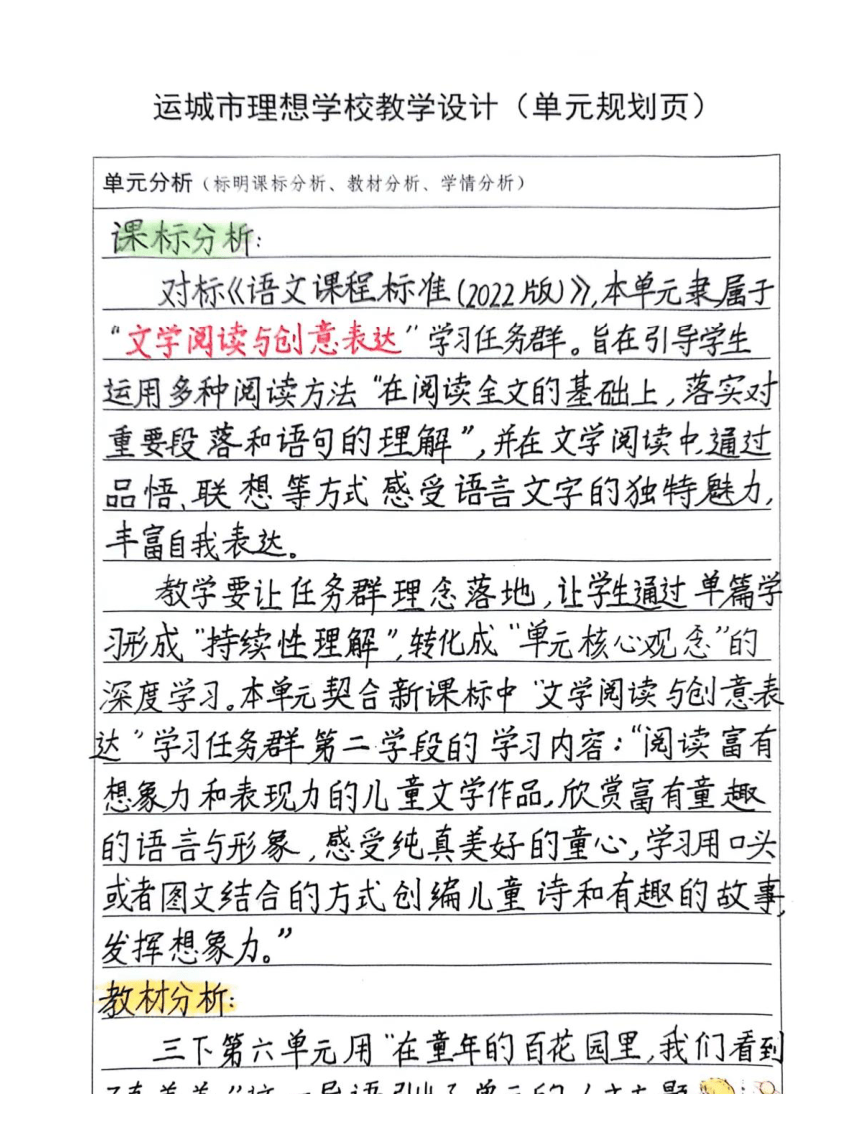 运城市理想学校教学设计（单元规划页）
单元分析（标明课标分析、教材分析、学情分析）
课标分析：
对标《语文课程标准（2022版）》，本单元隶属于
“文学阅读与创意表达”学习任务群。旨在引导学生
运用多种阅读方法“在阅读全文的基础上，落实对
重要段落和语句的理解”，并在文学阅读中，通过
品悟、联想等方式感受语言文字的独特魅力，
丰富自我表达。
教学要让任务群理念落地，让学生通过单篇学
习形成“持续性理解”，转化成“单元核心观念”的
深度学习。本单元契合新课标中“文学阅读与创意表
达”学习任务群第二学段的学习内容：“阅读富有
想象力和表现力的儿童文学作品，欣赏富有童趣
的语言与形象，感受纯真美好的童心，学习用口头
或者图文结合的方式创编儿童诗和有趣的故事，
发挥想象力。”
教材分析：
三下第六单元用“在童年的百花园里，我们看到